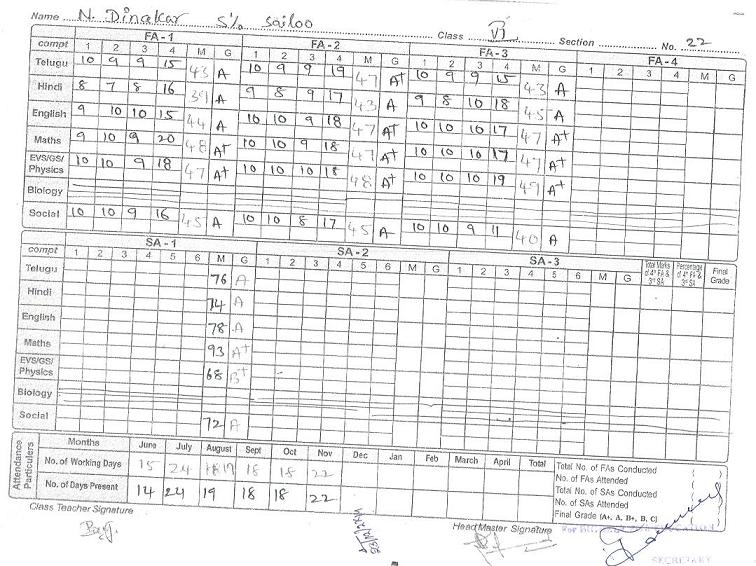 Name N. Dinakar S/o Sailoo Class VI Section No. 22
compt FA - 1 FA - 2 FA - 3 FA - 4
1 2 3 4 M G 1 2 3 4 M G 1 2 3 4 M G 1 2 3 4 M G
Telugu 10 9 9 15 43 A 10 9 9 19 47 A+ 10 9 9 15 43 A
Hindi 8 7 8 16 39 A 9 8 9 17 43 A 9 8 10 18 45 A
English 9 10 10 15 44 A 10 10 9 18 47 A+ 10 10 10 17 47 A+
Maths 9 10 9 20 48 A+ 10 10 9 18 47 A+ 10 10 10 17 47 A+
EVS/GS/ Physics 10 10 9 18 47 A+ 10 10 10 18 48 A+ 10 10 10 19 49 A+
Biology
Social 10 10 9 16 45 A 10 10 8 17 45 A 10 10 9 11 40 A
compt SA - 1 SA - 2 SA - 3
1 2 3 4 5 6 M G 1 2 3 4 5 6 M G 1 2 3 4 5 6 M G Total Marks of 4th FA & 3rd SA Percentage of 4th FA & 3rd SA Final Grade
Telugu 76 A
Hindi 74 A
English 78 A
Maths 93 A+
EVS/GS/ Physics 68 B+
Biology
Social 72 A
Attendance Particulars
Months June July August Sept Oct Nov Dec Jan Feb March April Total
No. of Working Days 15 24 19 18 18 22
No. of Days Present 14 24 19 18 18 22
Total No. of FAs Conducted ( )
No. of FAs Attended ( )
Total No. of SAs Conducted ( )
No. of SAs Attended ( )
Final Grade (A+, A, B+, B, C) ( )
Class Teacher Signature
Head Master Signature
SECRETARY